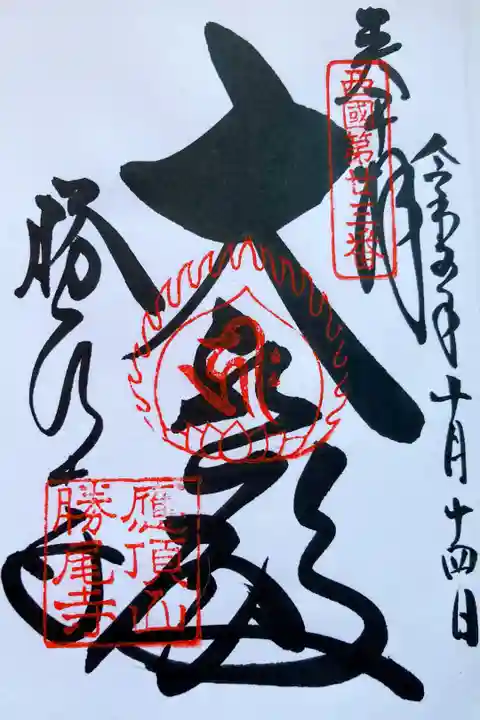 奉拝
西國第廿三番
令和五年十月廿四日
大悲殿
勝尾寺
應頂山
勝尾寺